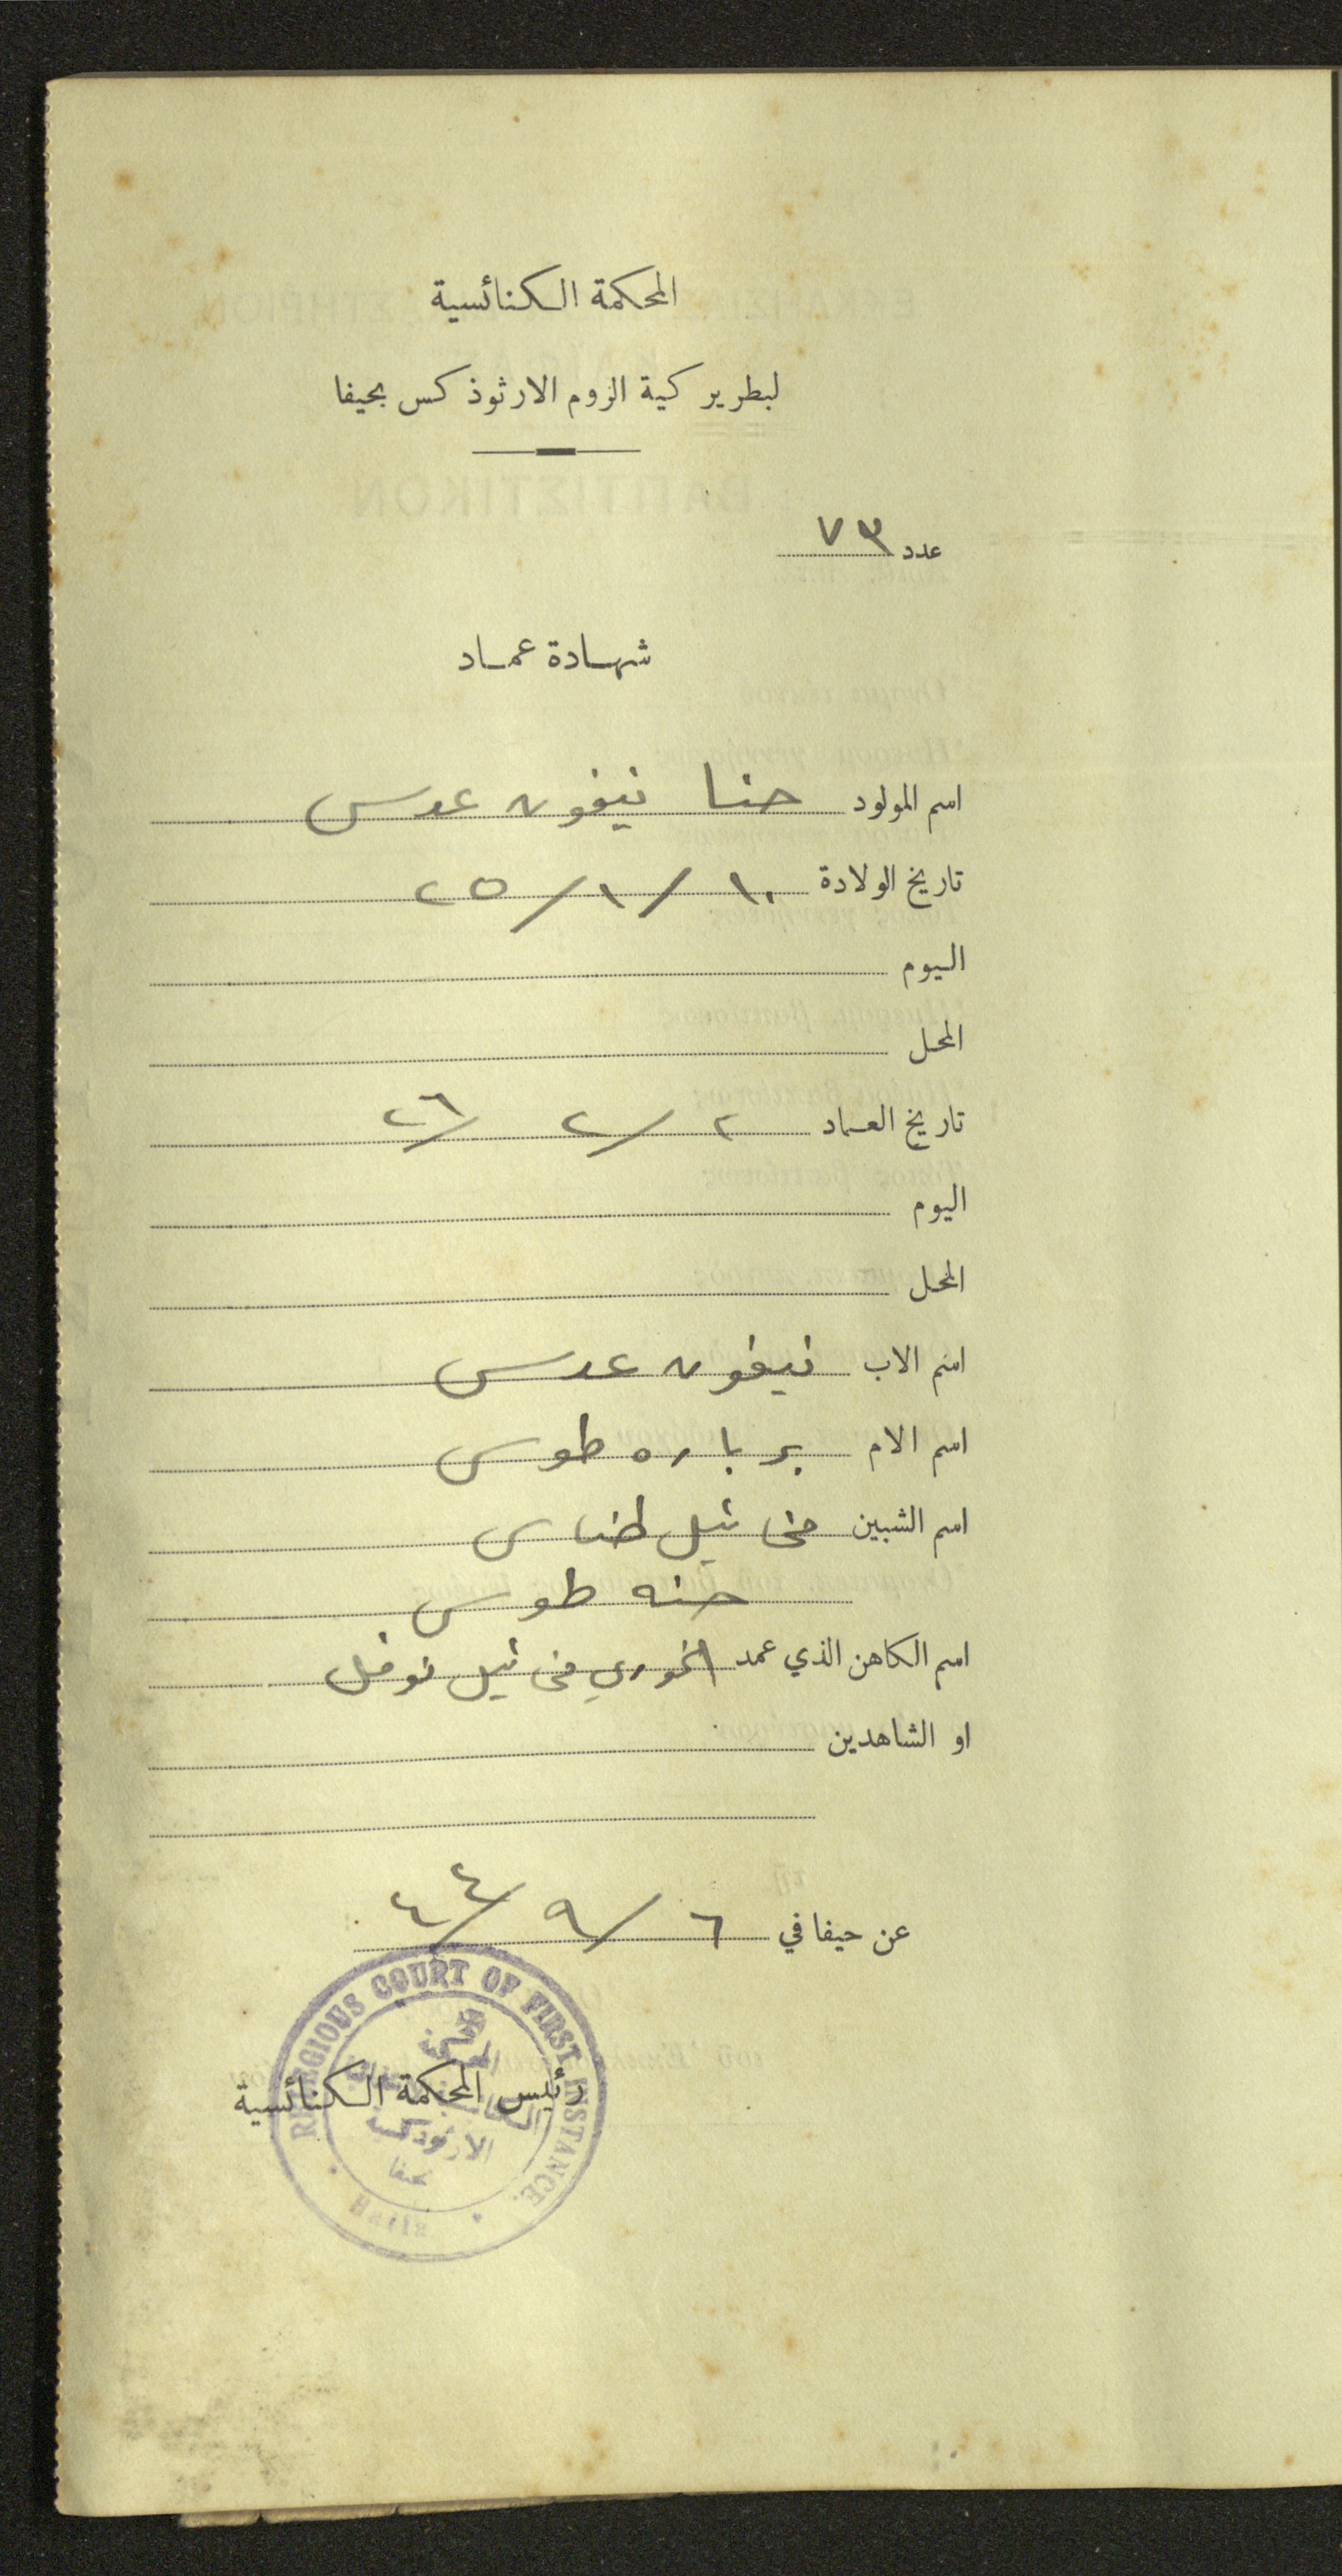 المحكمة الكنائسية
لبطريركية الروم الارثوذكس بحيفا
عدد ٧٣
شهادة عماد
اسم المولود حنا نيفون عدس
تاريخ الولادة ١٠/١/٢٥
اليوم
المحل
تاريخ العماد ٢/٢/٢٦
اليوم
المحل
اسم الاب نيفون عدس
اسم الام برباره طوس
اسم الشبين مخائيل طناس
حنه طوس
اسم الكاهن الذي عمد الخوري مخائيل نوفل
او الشاهدين
عن حيفا في ٦/٩/٤٤
رئيس المحكمة الكنائسية
RELIGIOUS COURT OF FIRST INSTANCE.
Haifa
المحكمة
الارثوذكسية
بحيفا